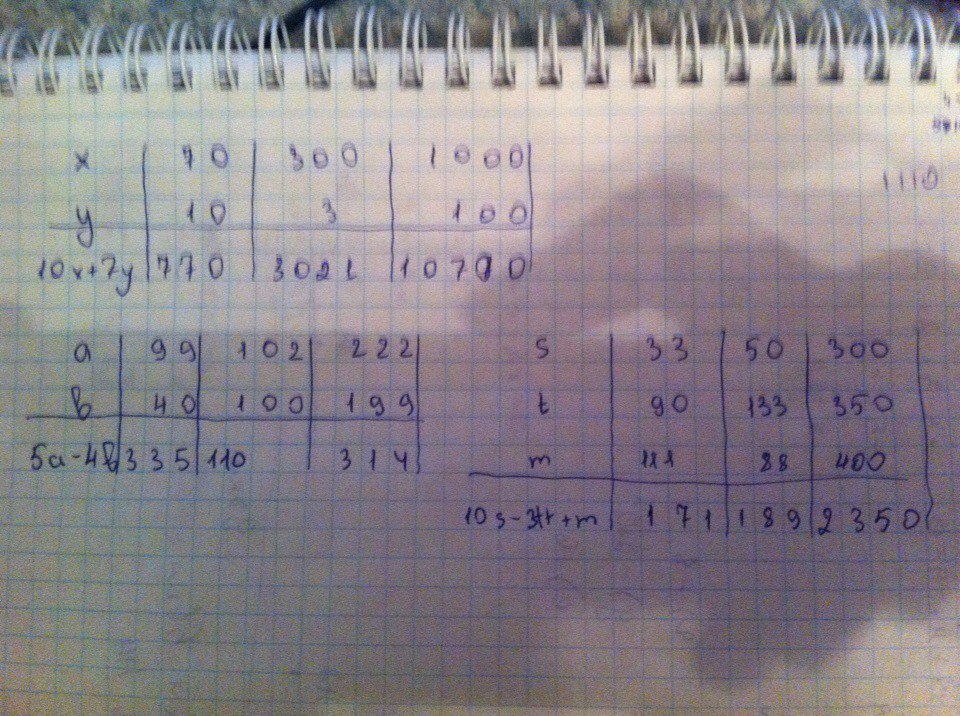 x 70 300 1000
y 10 3 100
10x+7y 770 3021 10700
1110
a 99 102 222
b 40 100 199
5a-4b 335 110 314
s 33 50 300
t 90 133 350
m 111 88 400
10s-3t+m 171 189 2350